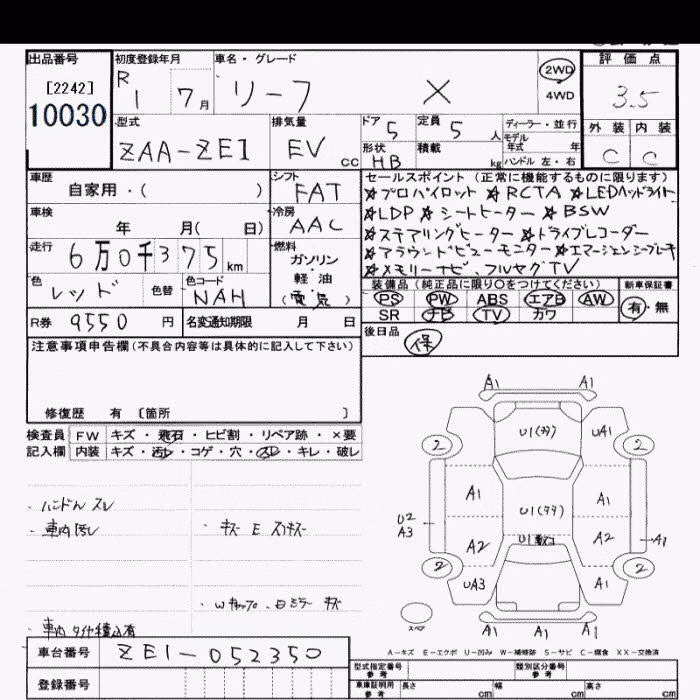 出品番号
[2242]
10030
初度登録年月
R 1 7月
車名・グレード
リーフ X
2WD
4WD
評価点
3.5
外装 内装
C C
型式
ZAA-ZE1
排気量
EV cc
ドア 5
定員 5 人
形状 HB
積載 kg
ディーラー・並行
モデル年式 年
ハンドル 左・右
車歴
自家用・( )
シフト
FAT
車検
年 月( 日)
冷房
AAC
走行
6万0千375 km
燃料
ガソリン
・
軽油
(電気)
色
レッド
色替
色コード
NAH
R券 9550 円
名変通知期限 月 日
セールスポイント(正常に機能するものに限ります)
☆プロパイロット ☆RCTA ☆LEDヘッドライト
☆LDP ☆シートヒーター ☆BSW
☆ステアリングヒーター ☆ドライブレコーダー
☆アラウンドビューモニター ☆エマージェンシーブレーキ
☆メモリーナビ、フルセグTV
装備品(純正品に限り○をつけてください)
PS PW ABS エアB AW
SR ナビ TV カワ
新車保証書
有・無
後日品
保
注意事項申告欄(不具合内容等は具体的に記入して下さい)
修復歴 有 〔箇所 〕
検査員記入欄
FW キズ・飛石・ヒビ割・リペア跡・×要
内装 キズ・汚レ・コゲ・穴・スレ・キレ・破レ
・ハンドル スレ
・車内汚レ
・キズ E スリキズ
・Wキャップ、Dミラー キズ
・車内 タイヤ積込有
A1 A1
2 U1 UA1 2
A1 U1 A1
U2
A3
A2 U1 A2 A1
2 UA3 A1 2
スペア
A1 A1 A1
A-キズ E-エクボ U-凹み W-補修跡 S-サビ C-腐食 XX-交換済
車台番号
ZE1-052350
登録番号
型式指定番号 参考
類別区分番号 参考
車庫証明用 参考
長さ cm 幅 cm 高さ cm